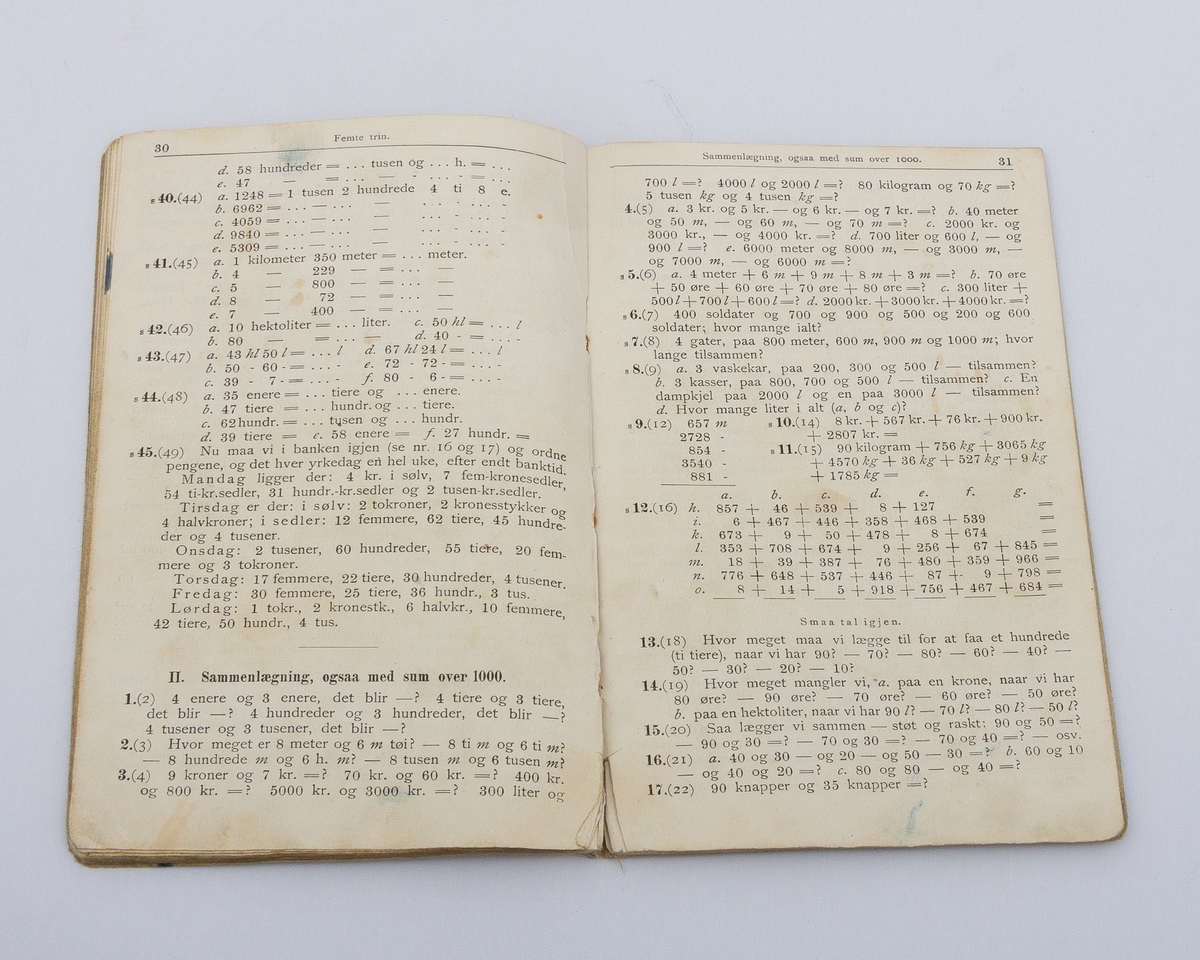 30
Femte trin.
d. 58 hundreder = ... tusen og ... h. = ...
e. 47 — = ... — - ... — = ...
s 40.(44) a. 1248 = 1 tusen 2 hundrede 4 ti 8 e.
b. 6962 = ... — ... — ... - ...
c. 4059 = ... — ... — ... - ...
d. 9840 = ... — ... — ... - ...
e. 5309 = ... — ... — ... - ...
s 41.(45) a. 1 kilometer 350 meter = ... meter.
b. 4 — 229 — = ... —
c. 5 — 800 — = ... —
d. 8 — 72 — = ... —
e. 7 — 400 — = ... —
s 42.(46) a. 10 hektoliter = ... liter. c. 50 hl = ... l
b. 80 — = ... — d. 40 - = ... -
s 43.(47) a. 43 hl 50 l = ... l d. 67 hl 24 l = ... l
b. 50 - 60 - = ... - e. 72 - 72 - = ... -
c. 39 - 7 - = ... - f. 80 - 6 - = ... -
s 44.(48) a. 35 enere = ... tiere og ... enere.
b. 47 tiere = ... hundr. og ... tiere.
c. 62 hundr. = ... tusen og ... hundr.
d. 39 tiere = e. 58 enere = f. 27 hundr. =
s 45.(49) Nu maa vi i banken igjen (se nr. 16 og 17) og ordne
pengene, og det hver yrkedag en hel uke, efter endt banktid.
Mandag ligger der: 4 kr. i sølv, 7 fem-kronesedler,
54 ti-kr.sedler, 31 hundr.-kr.sedler og 2 tusen-kr.sedler.
Tirsdag er der: i sølv: 2 tokroner, 2 kronestykker og
4 halvkroner; i sedler: 12 femmere, 62 tiere, 45 hundre-
der og 4 tusener.
Onsdag: 2 tusener, 60 hundreder, 55 tiere, 20 fem-
mere og 3 tokroner.
Torsdag: 17 femmere, 22 tiere, 30 hundreder, 4 tusener.
Fredag: 30 femmere, 25 tiere, 36 hundr., 3 tus.
Lørdag: 1 tokr., 2 kronestk., 6 halvkr., 10 femmere,
42 tiere, 50 hundr., 4 tus.
II. Sammenlægning, ogsaa med sum over 1000.
1.(2) 4 enere og 3 enere, det blir —? 4 tiere og 3 tiere,
det blir —? 4 hundreder og 3 hundreder, det blir —?
4 tusener og 3 tusener, det blir —?
2.(3) Hvor meget er 8 meter og 6 m tøi? — 8 ti m og 6 ti m?
— 8 hundrede m og 6 h. m? — 8 tusen m og 6 tusen m?
3.(4) 9 kroner og 7 kr. =? 70 kr. og 60 kr. =? 400 kr.
og 800 kr. =? 5000 kr. og 3000 kr. =? 300 liter og
Sammenlægning, ogsaa med sum over 1000.
31
700 l =? 4000 l og 2000 l =? 80 kilogram og 70 kg =?
5 tusen kg og 4 tusen kg =?
4.(5) a. 3 kr. og 5 kr. — og 6 kr. — og 7 kr. =? b. 40 meter
og 50 m, — og 60 m, — og 70 m =? c. 2000 kr. og
3000 kr., — og 4000 kr. =? d. 700 liter og 600 l, — og
900 l =? e. 6000 meter og 8000 m, — og 3000 m, —
og 7000 m, — og 6000 m =?
s 5.(6) a. 4 meter + 6 m + 9 m + 8 m + 3 m =? b. 70 øre
+ 50 øre + 60 øre + 70 øre + 80 øre =? c. 300 liter +
500 l + 700 l + 600 l =? d. 2000 kr. + 3000 kr. + 4000 kr. =?
s 6.(7) 400 soldater og 700 og 900 og 500 og 200 og 600
soldater; hvor mange ialt?
s 7.(8) 4 gater, paa 800 meter, 600 m, 900 m og 1000 m; hvor
lange tilsammen?
s 8.(9) a. 3 vaskekar, paa 200, 300 og 500 l — tilsammen?
b. 3 kasser, paa 800, 700 og 500 l — tilsammen? c. En
dampkjel paa 2000 l og en paa 3000 l — tilsammen?
d. Hvor mange liter i alt (a, b og c)?
s 9.(12) 657 m
2728 -
854 -
3540 -
881 -
s 10.(14) 8 kr. + 567 kr. + 76 kr. + 900 kr.
+ 2807 kr. =
s 11.(15) 90 kilogram + 756 kg + 3065 kg
+ 4570 kg + 36 kg + 527 kg + 9 kg
+ 1785 kg =
a. b. c. d. e. f. g.
s 12.(16) h. 857 + 46 + 539 + 8 + 127 =
i. 6 + 467 + 446 + 358 + 468 + 539 =
k. 673 + 9 + 50 + 478 + 8 + 674 =
l. 353 + 708 + 674 + 9 + 256 + 67 + 845 =
m. 18 + 39 + 387 + 76 + 480 + 359 + 966 =
n. 776 + 648 + 537 + 446 + 87 + 9 + 798 =
o. 8 + 14 + 5 + 918 + 756 + 467 + 684 =
Smaa tal igjen.
13.(18) Hvor meget maa vi lægge til for at faa et hundrede
(ti tiere), naar vi har 90? — 70? — 80? — 60? — 40? —
50? — 30? — 20? — 10?
14.(19) Hvor meget mangler vi, a. paa en krone, naar vi har
80 øre? — 90 øre? — 70 øre? — 60 øre? — 50 øre?
b. paa en hektoliter, naar vi har 90 l? — 70 l? — 80 l? — 50 l?
15.(20) Saa lægger vi sammen — støt og raskt: 90 og 50 =?
— 90 og 30 =? — 70 og 30 =? — 70 og 40 =? — osv.
16.(21) a. 40 og 30 — og 20 — og 50 — 30 =? b. 60 og 10
— og 40 og 20 =? c. 80 og 80 — og 40 =?
17.(22) 90 knapper og 35 knapper =?